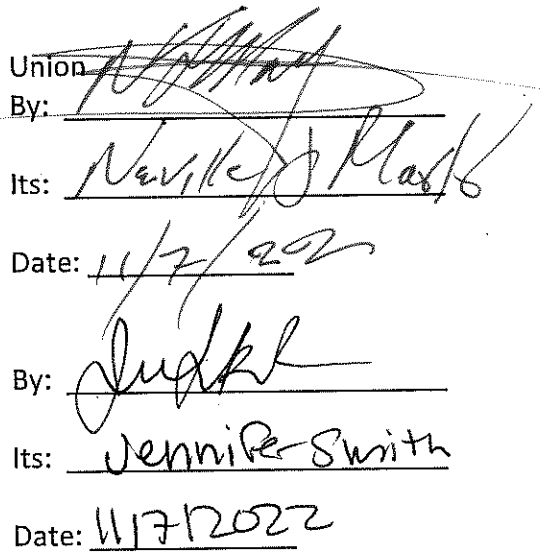 Union
By:
Its: Neville J Marks
Date: 11/7/202
By:
Its: Jennifer Smith
Date: 11/7/2022